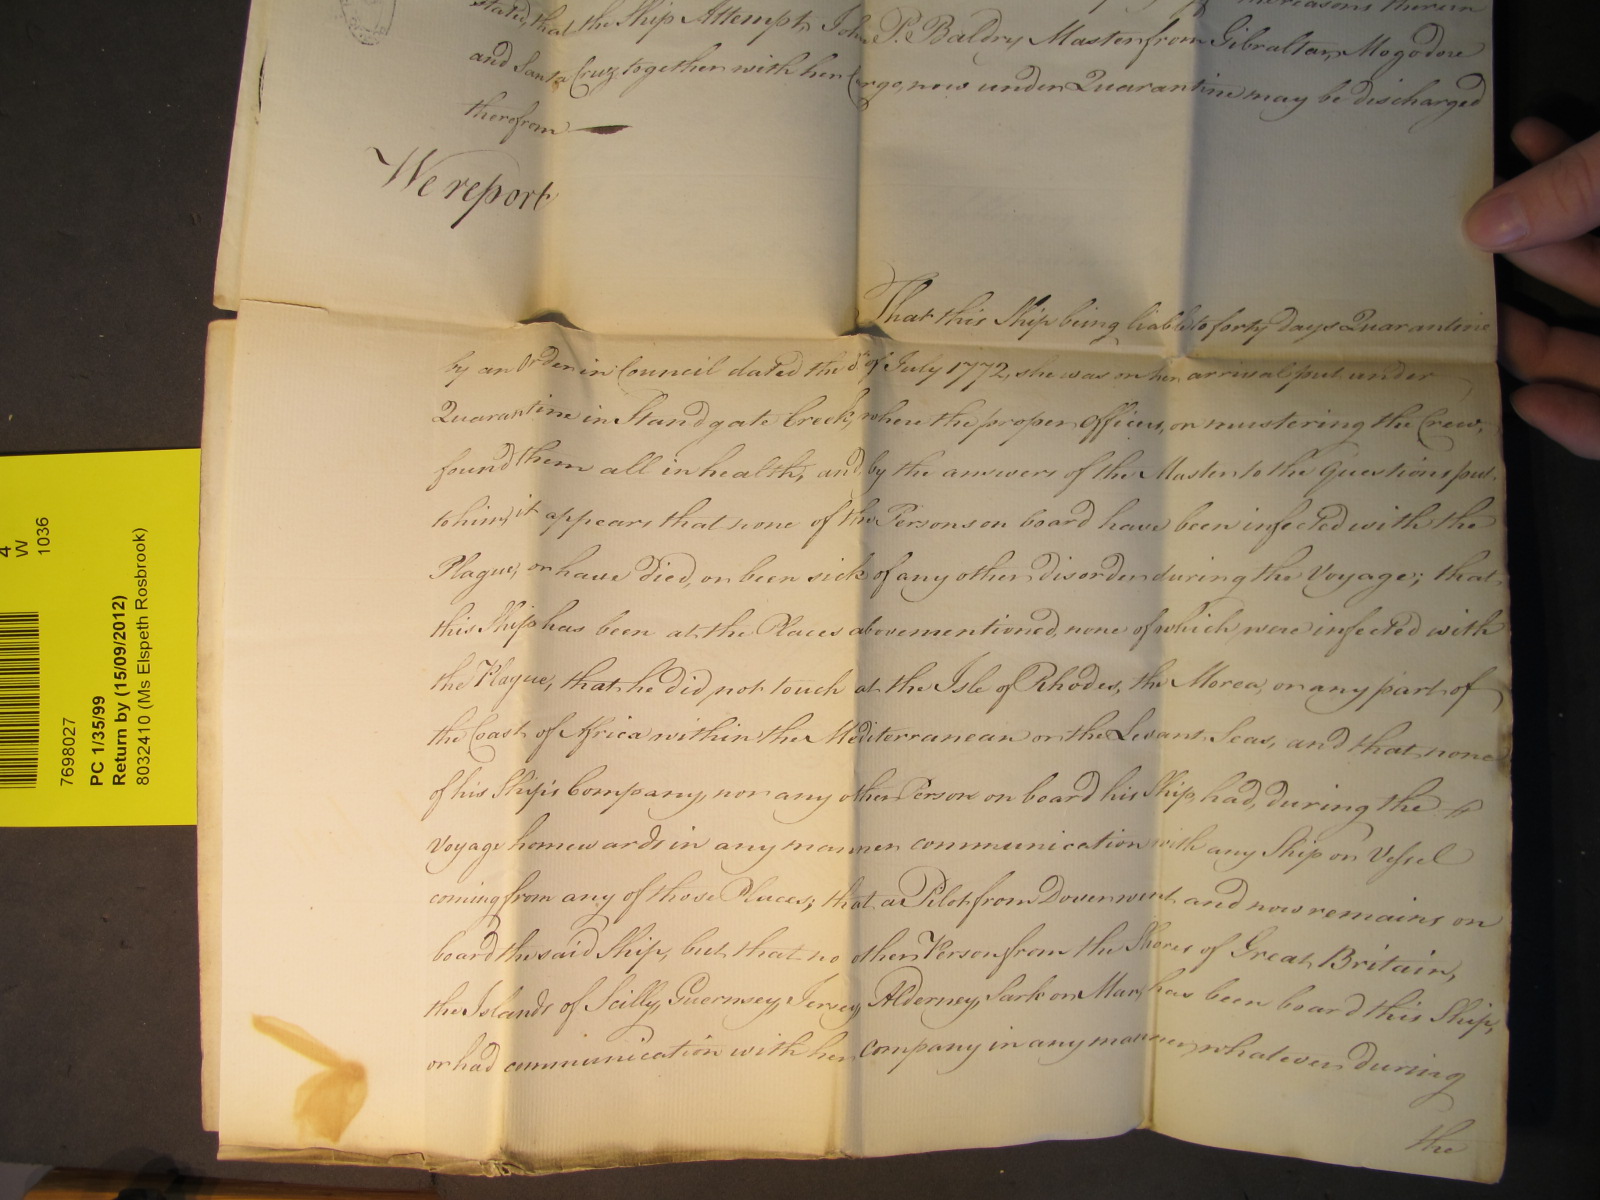 the reasons therein
stated, that the Ship Attempt, John P. Baldry Master from Gibraltar, Mogodore
and Santa Cruz together with her Cargo, now under Quarantine may be discharged
therefrom —
We report
That this Ship being liable to forty days Quarantine
by an Order in Council dated the of July 1772, she was on her arrival put under
Quarantine in Standgate Creek, where the proper Officers, on mustering the Crew,
found them all in health, and by the answers of the Master to the Questions put
to him, it appears that none of the Persons on board have been infected with the
Plague, or have died, or been sick of any other disorder during the Voyage; that
this Ship has been at the Places abovementioned, none of which were infected with
the Plague, that he did not touch at the Isle of Rhodes, the Morea, or any part of
the Coast of Africa within the Mediterranean or the Levant Seas, and that none
of his Ship's Company, nor any other Person on board his Ship, had, during the
Voyage homewards in any manner communication with any Ship or Vessel
coming from any of those Places; that a Pilot from Dover went and now remains on
board the said Ship, but that no other Person from the Shores of Great Britain,
the Islands of Scilly, Guernsey, Jersey, Alderney, Sark or Man, has been board this Ship,
or had communication with her Company in any manner whatever during
the
4
W
1036
7698027
PC 1/35/99
Return by (15/09/2012)
8032410 (Ms Elspeth Rosbrook)